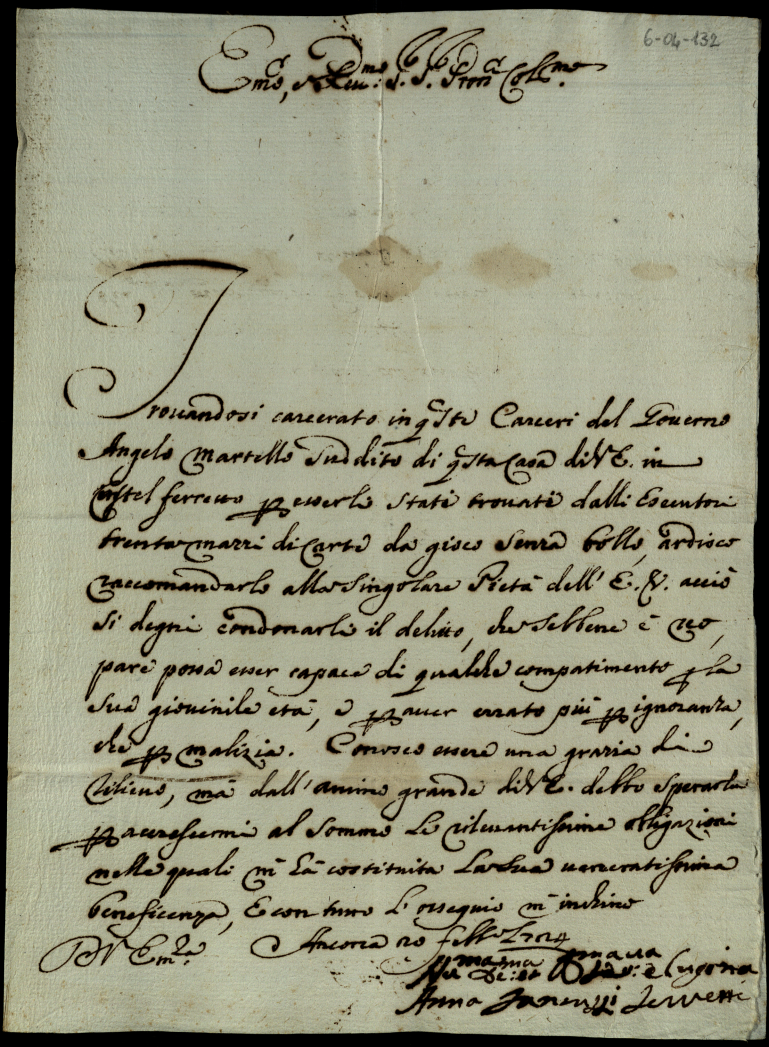 6-04-132
Em.o, e Reu.mo S.r S.r Pron. Col.mo
Trouandosi carcerato in q.ste Carceri del Gouerno
Angelo Martello Suddito di q.sta Casa di V E. in
Castel ferretto p esserli state trouate dalli Esecutori
trenta mazzi di Carte da gioco senza bollo, ardisco
raccomandarlo alla Singolare Pietà dell' E. V. acciò
si degni condonarli il delitto, che Sebbene è reo,
pare possa esser capace di qualche compatimento p la
sua giouinile età, e p auer errato più p ignoranza,
che p malizia. Conosco essere una grazia di
rilieuo, mà dall' animo grande di V E. debbo sperarla
p accrescermi al Sommo le rileuantissime obligazioni
nelle quali m' hà costituita la sua veneratissima
beneficenza, E con tutto l' ossequio m' inchino
D V Em.za Ancona 20 febb.o 1724
Anna